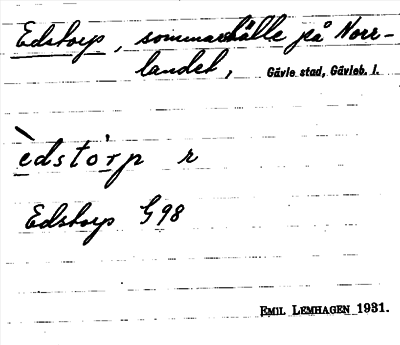 Edstorp, sommarställe på Norr-
landet, Gävle stad, Gävleb. l.
èdstȯ́rp r
Edstorp G98
EMIL LEMHAGEN 1931.